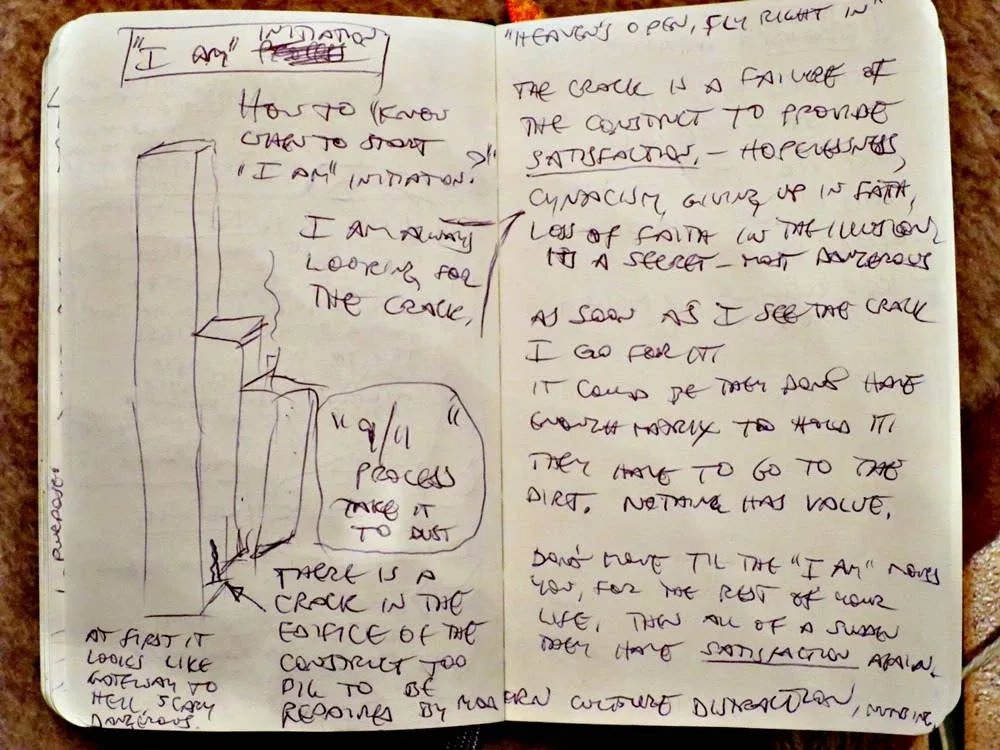 "I AM" INITIATION
HOW TO "KNOW
WHEN TO START
"I AM" INITIATON?"
I AM ALWAYS
LOOKING FOR
THE CRACK,
"9/11"
PROCESS
TAKE IT
TO DUST
THERE IS A
CRACK IN THE
EDIFICE OF THE
CONSTRUCT TOO
TO BE
REPAIRED BY MODERN CULTURE DISTRACTION, NUMBING,
AT FIRST IT
LOOKS LIKE
GATEWAY TO
HELL, SCARY
DANGEROUS.
PURPOSE
"HEAVEN'S OPEN, FLY RIGHT IN"
THE CRACK IS A FAILURE OF
THE CONSTRUCT TO PROVIDE
SATISFACTION. – HOPELESSNESS,
CYNACISM, GIVING UP IN FAITH,
LOSS OF FAITH IN THE ILLUSION,
IT'S A SECRET – MOST DANGEROUS
AS SOON AS I SEE THE CRACK
I GO FOR IT!
IT COULD BE THEY DON'T HAVE
ENOUGH MATRIX TO HOLD IT!
THEY HAVE TO GO TO THE
DIRT. NOTHING HAS VALUE.
DON'T MOVE TIL THE "I AM" MOVES
YOU, FOR THE REST OF YOUR
LIFE. THEN ALL OF A SUDDEN
THEY HAVE SATISFACTION AGAIN.